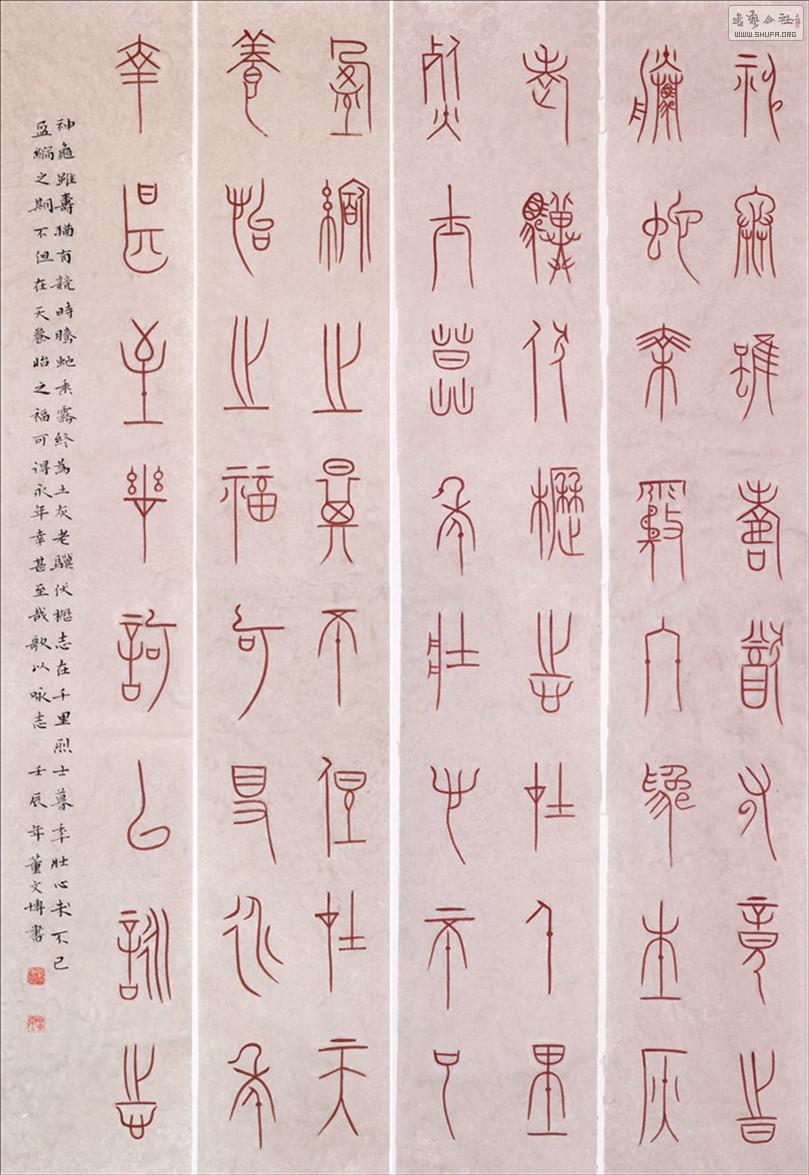 書藝公社
WWW.SHUFA.ORG
神龜雖壽猶有竟時
騰蛇乘霧終為土灰
老驥伏櫪志在千里
烈士暮年壯心不已
盈縮之期不但在天
養怡之福可得永年
幸甚至哉歌以詠志
神龜雖壽猶有競時騰蛇乘霧終為土灰老驥伏櫪志在千里烈士暮年壯心未不已
盈縮之期不但在天養怡之福可得永年幸甚至哉歌以咏志 壬辰年董文博書